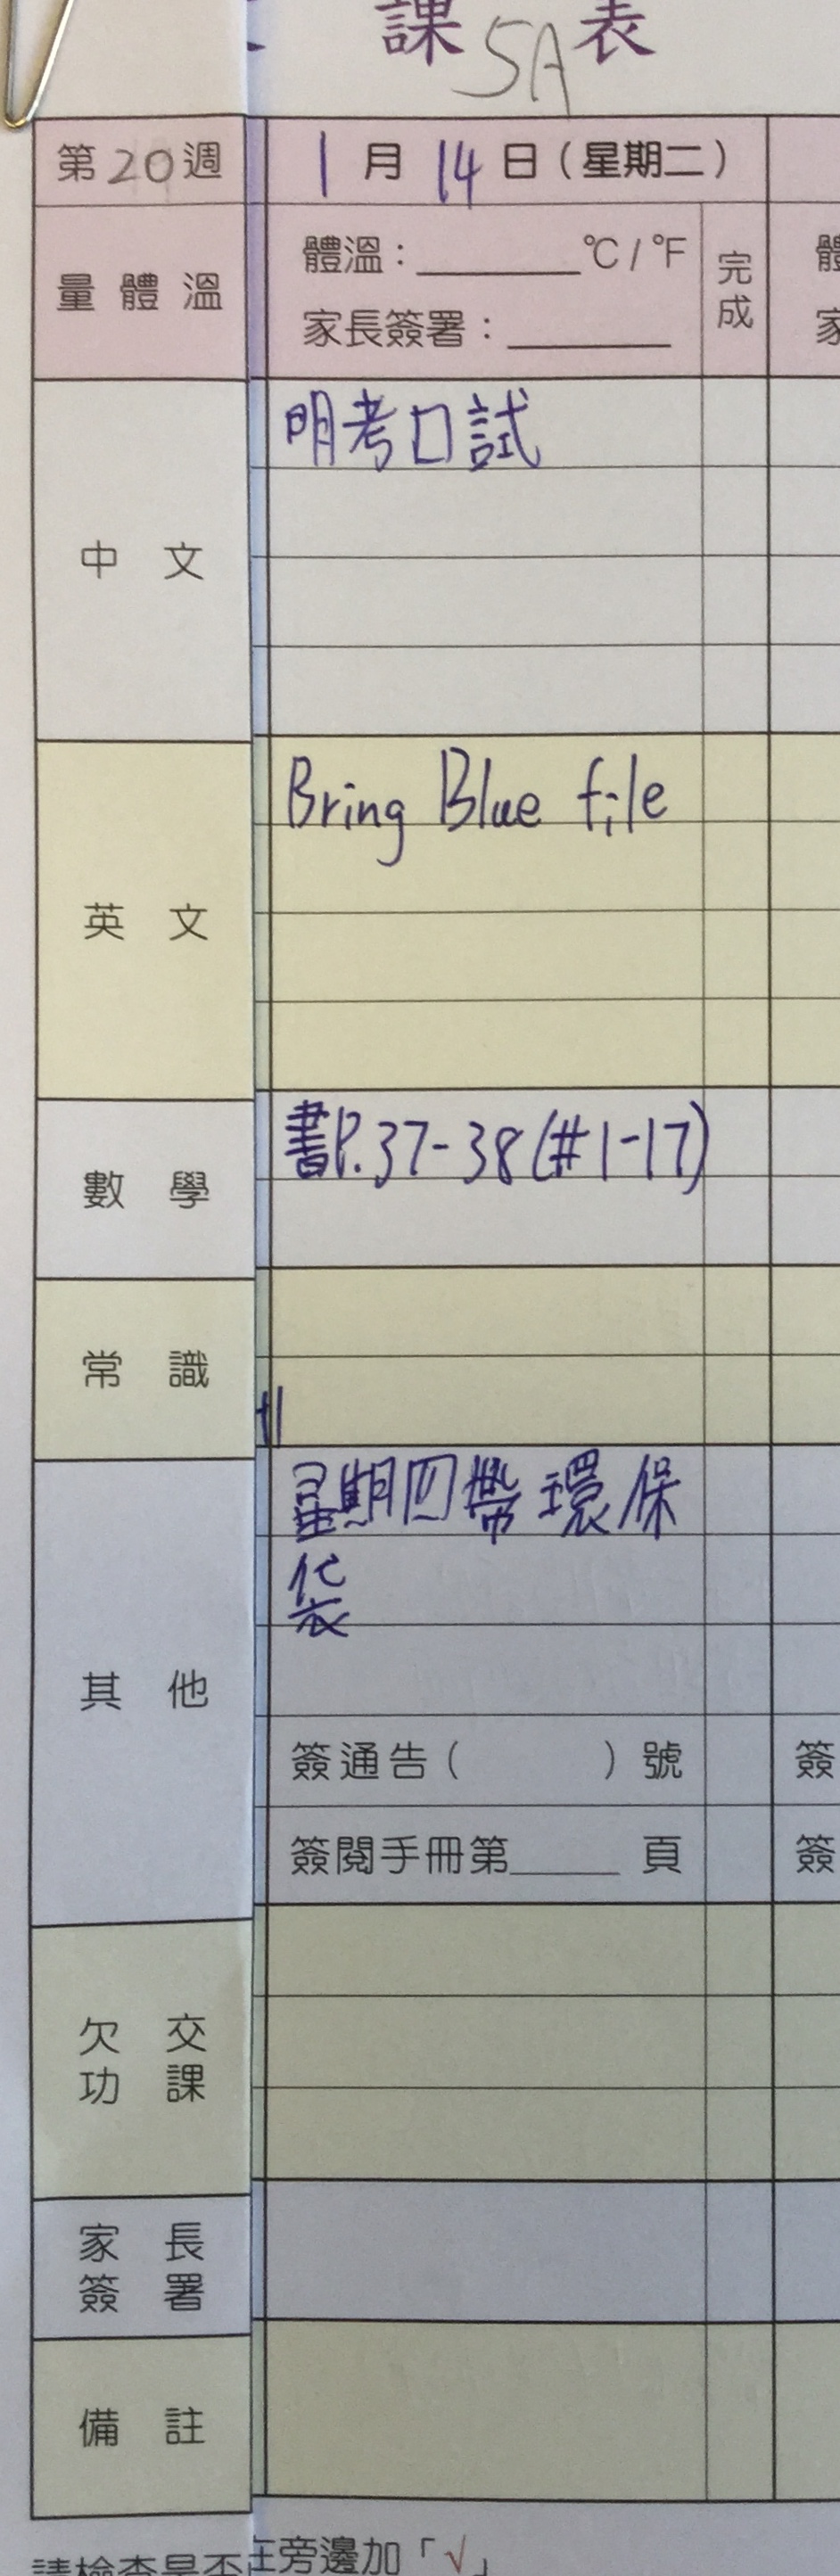 課5A表
第20週 1月14日(星期二)
量體溫 體溫:______℃/℉ 完成
家長簽署:______
中文 明考口試
英文 Bring Blue file
數學 書P.37-38(#1-17)
常識
其他 星期四帶環保
袋
簽通告( )號 簽
簽閱手冊第____頁 簽
欠交
功課
家長
簽署
備註
請檢查是否在旁邊加「√」